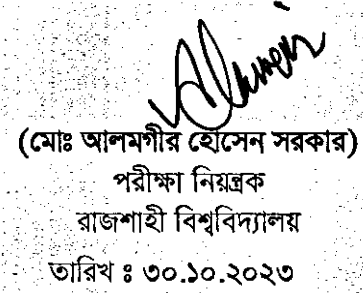 (মোঃ আলমগীর হোসেন সরকার)
পরীক্ষা নিয়ন্ত্রক
রাজশাহী বিশ্ববিদ্যালয়
তারিখ ঃ ৩০.১০.২০২৩